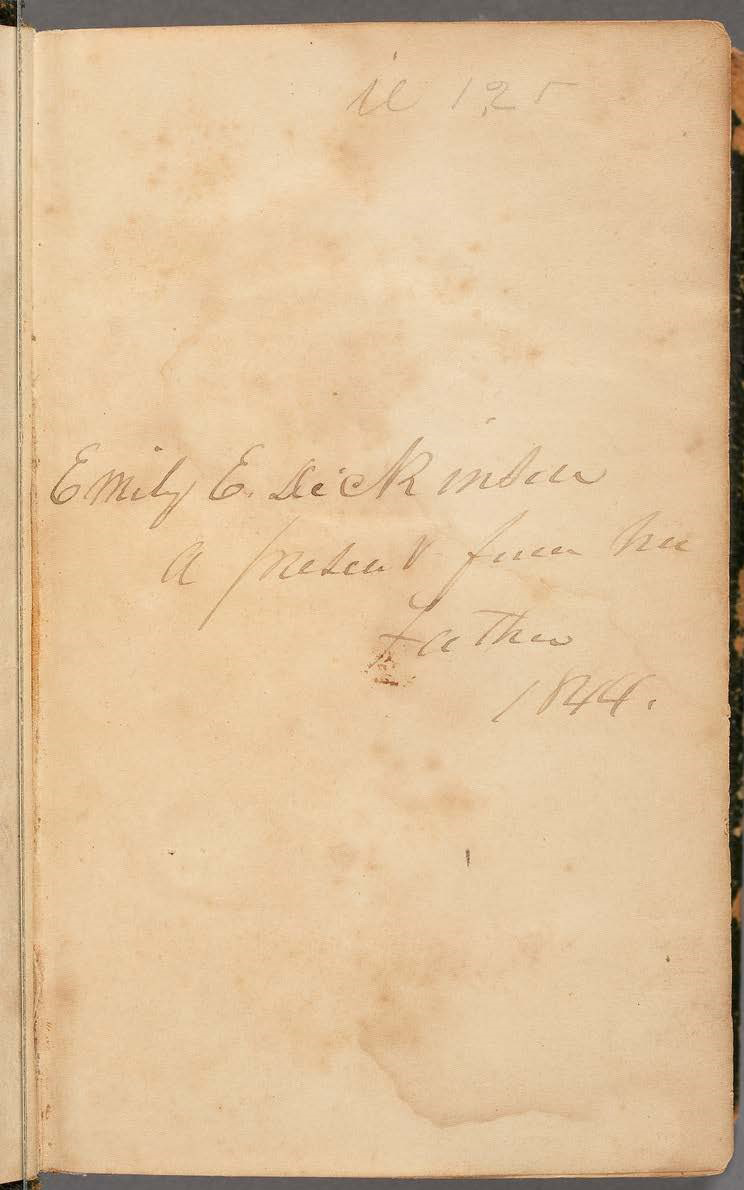 1.25
Emily E. Dickinson
a present from her
Father
1844.